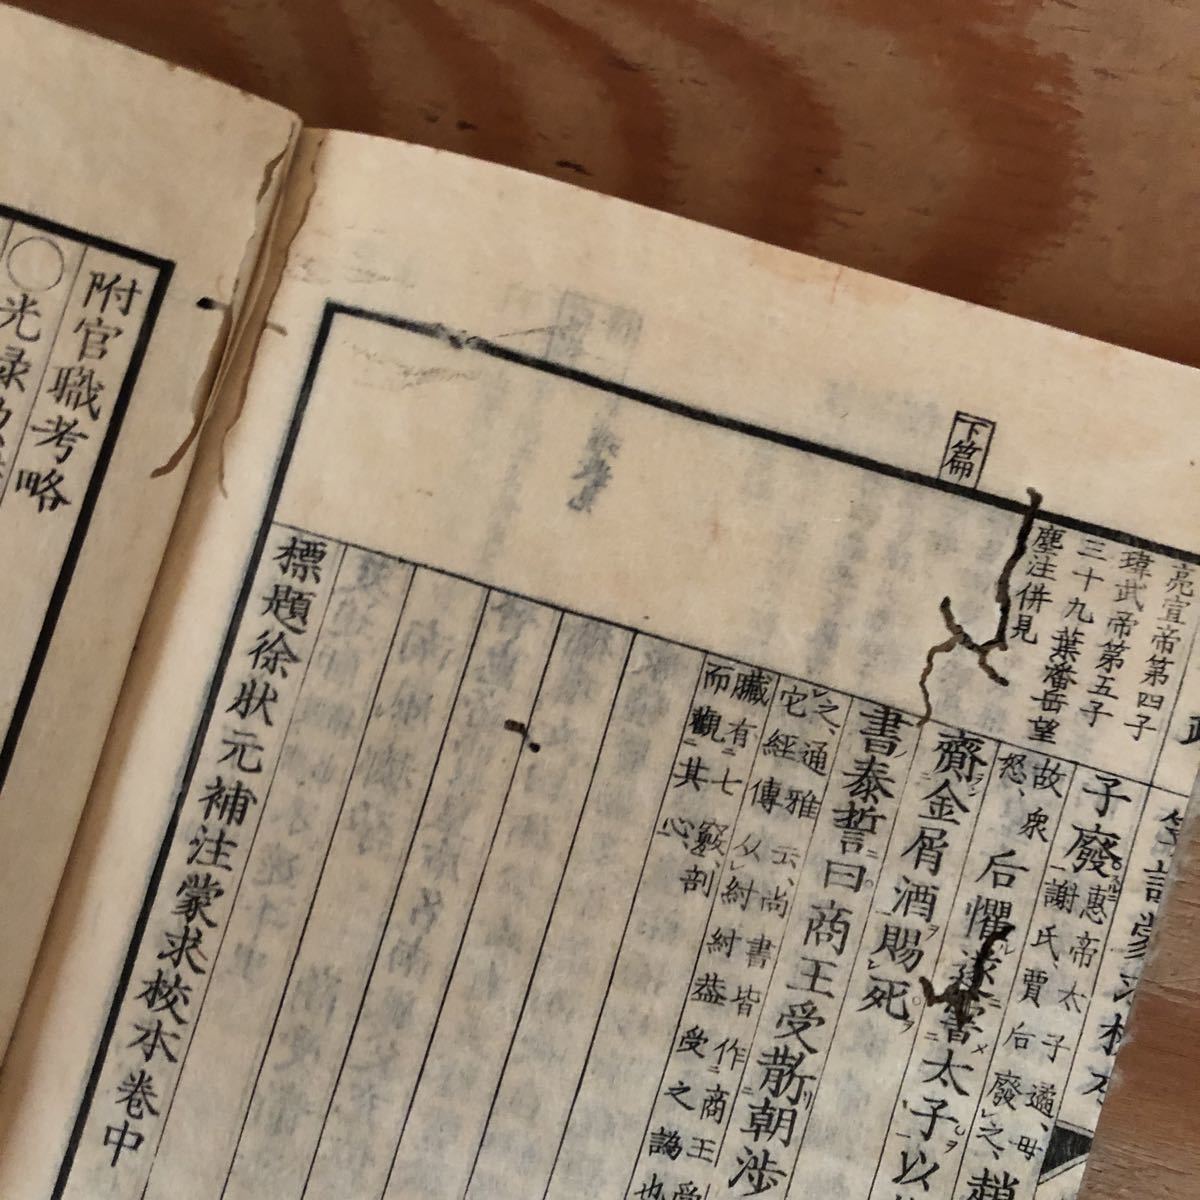 下篇
亮宣帝第四子
瑋武帝第五子
三十九葉潘岳望
塵注併見
子廢
惠帝太子遹母
謝氏賈后廢之
故衆
怒
后懼遂害太子以
齎金屑酒賜死
書泰誓曰商王受斮朝涉
之通雅云尚書皆作商王受
它經傳紂紂葢受之譌也
臟有七竅剖
而觀其心
標題徐狀元補注蒙求校本卷中
附官職考略
〇光祿